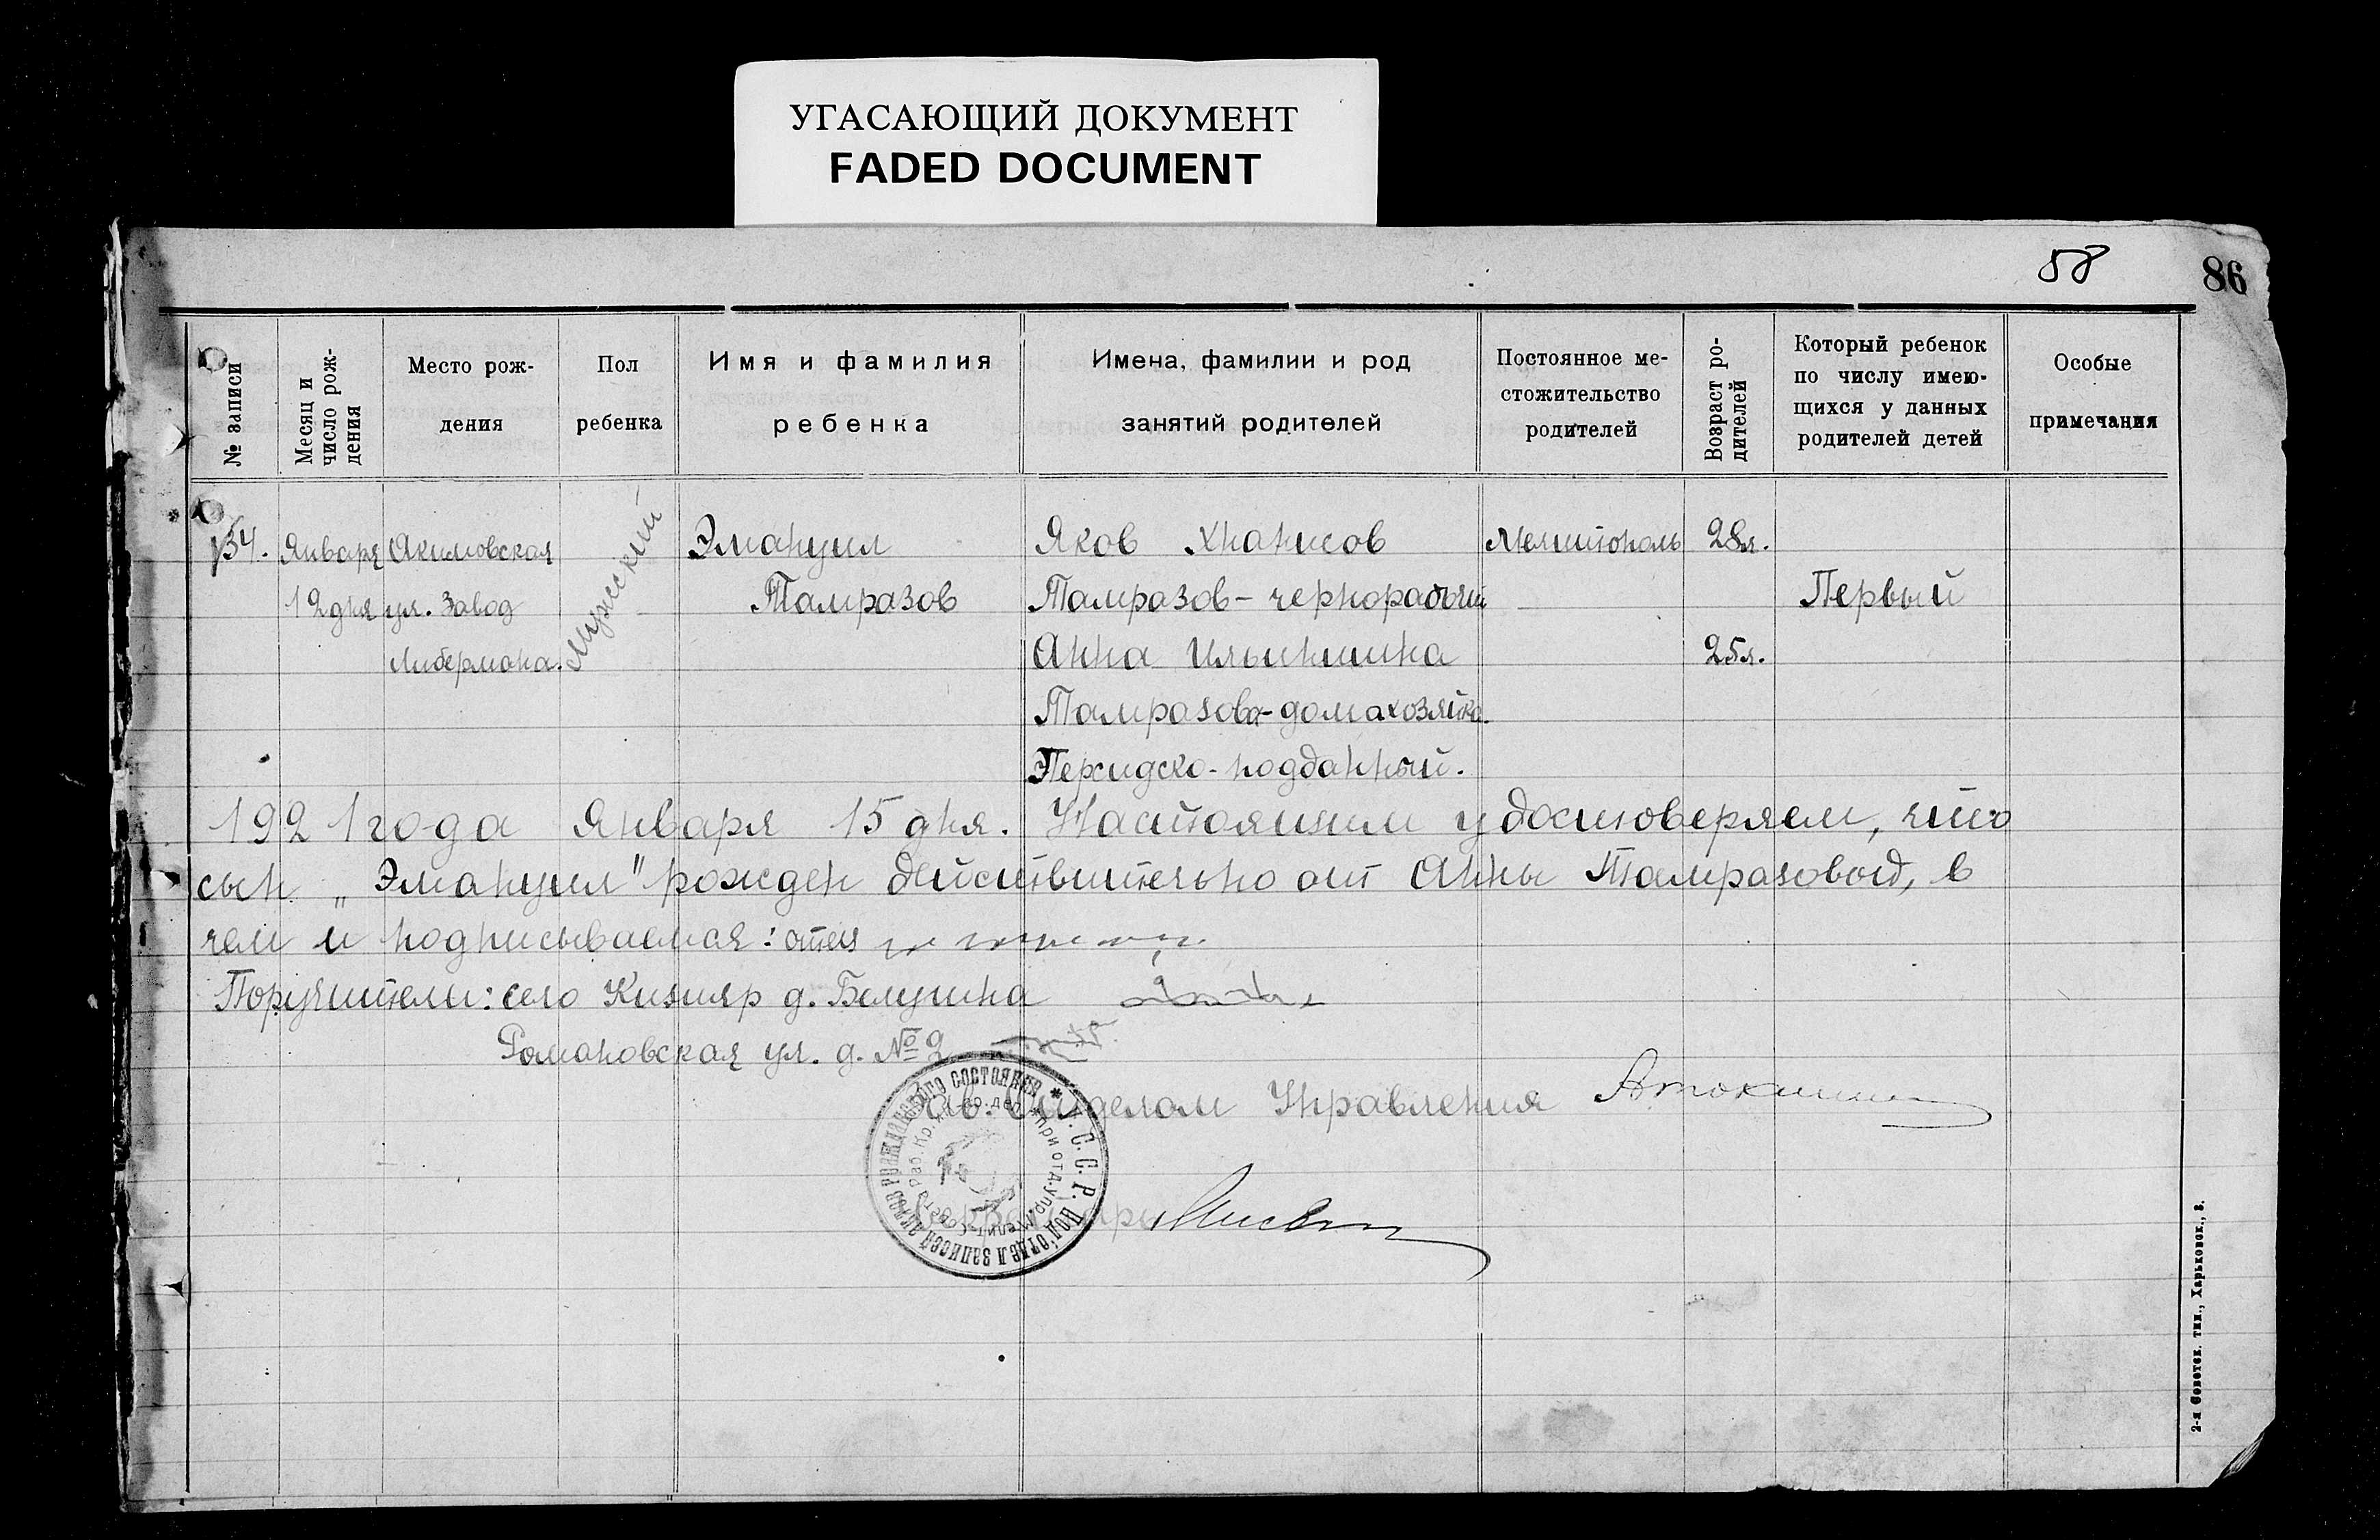 УГАСАЮЩИЙ ДОКУМЕНТ
FADED DOCUMENT
58
86
№ записи
Месяц и
число рож-
дения
Место рож-
дения
Пол
ребенка
Имя и фамилия
ребенка
Имена, фамилии и род
занятий родителей
Постоянное ме-
стожительство
родителей
Возраст ро-
дителей
Который ребенок
по числу имею-
щихся у данных
родителей детей
Особые
примечания
54.
Января
12 дня
Якимовская
ул. завод
Либермана.
Мужский
Эмануил
Тамразов
Яков
Тамразов - чернорабочий
Анна Ильинишна
Тамразова - домахозяйка.
Персидско-подданный.
Мелитополь
28 л.
25 л.
Первый
1921 года Января 15 дня. Настоящим удостоверяем, что
сын „Эмануил" рожден действительно от Анны Тамразовой, в
чем и подписываемся: отец
Поручители: село Кизияр д. Белугина
Романовская ул. д. № 2
Зав. Отделом Управления
Секретарь
С. С. Р. Под'отдел записей актов гражданского состояния
при отд. упр. Мелит. Совета Раб. Кр.
2-я Советск. тип., Харьковск., 3.